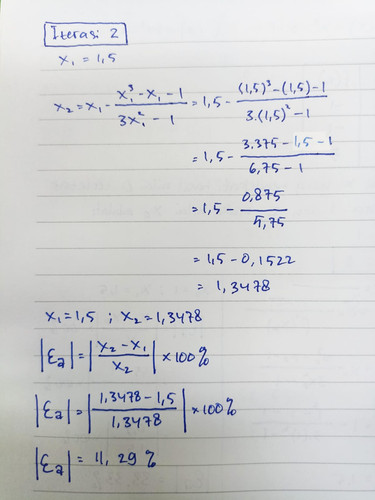 Iterasi 2
x₁ = 1,5
x₂ = x₁ - (x₁³ - x₁ - 1)/(3x₁² - 1) = 1,5 - ((1,5)³ - (1,5) - 1)/(3.(1,5)² - 1)
= 1,5 - (3.375 - 1,5 - 1)/(6,75 - 1)
= 1,5 - 0,875/5,75
= 1,5 - 0,1522
= 1,3478
x₁ = 1,5 ; x₂ = 1,3478
|εa| = |(x₂ - x₁)/x₂| × 100%
|εa| = |(1,3478 - 1,5)/1,3478| × 100%
|εa| = 11,29 %